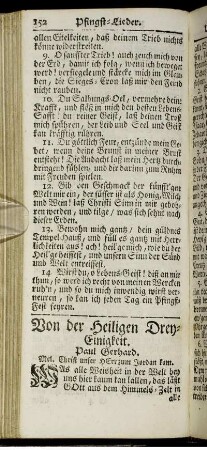 252 Pfingst-Lieder.
allen Eitelkeiten, daß deinem Trieb nichts
könne widerstreiten.
9. O sanffter Trieb! auch zeuch mich von
der Erd, damit ich folg, wenn ich beweget
werd! versiegele und stärcke mich im Glau-
ben, die Sieges-Cron laß mir den Feind
nicht rauben.
10. Du Salbungs-Oel, vermehre deine
Krafft, und flöß in mich den besten Lebens-
Safft! du reiner Geist, laß deinen Trost
mich spühren, der Leib und Seel und Geist
kan kräfftig rühren.
11. Du göttlich Feur, entzünde mein Ge-
bet, wann das Brunst in meiner
entsteht! Die Andacht laß mein Hertz durch-
dringen und erhören mit
Freuden springen.
12. Gib den Geschmack der künfft'gen
Welt mir ein, der süsser ist als Honig, Milch
und Wein! laß Christi Sinn in mir gebohr-
ren werden, und tilge, was sich sehnt nach
dieser Erden.
13. Bewohn mich gantz, dein güldnes
Tempel-Hauß, und füll es gantz mit Herr-
lichkeiten aus! ach! heilge mich, wie du der
Heil'ge heissest, und unsern Sinn der Sünd
und Welt entreissest.
14. Wirst du, o Lebens-Geist! diß an mir
thun, so werd ich recht von meinen Wercken
ruh'n, und so du mich inwendig wirst ver-
neuren, so kan ich jeden Tag ein Pfingst-
Fest feyren.
Von der Heiligen Drey-
Einigkeit.
Paul Gerhard.
Mel. Christ unser HErr zum Jordan kam.
WAs alle Weisheit in der Welt bey
uns hier kaum kan lallen, das läßt
GOtt aus dem Himmels-Zelt in
alle